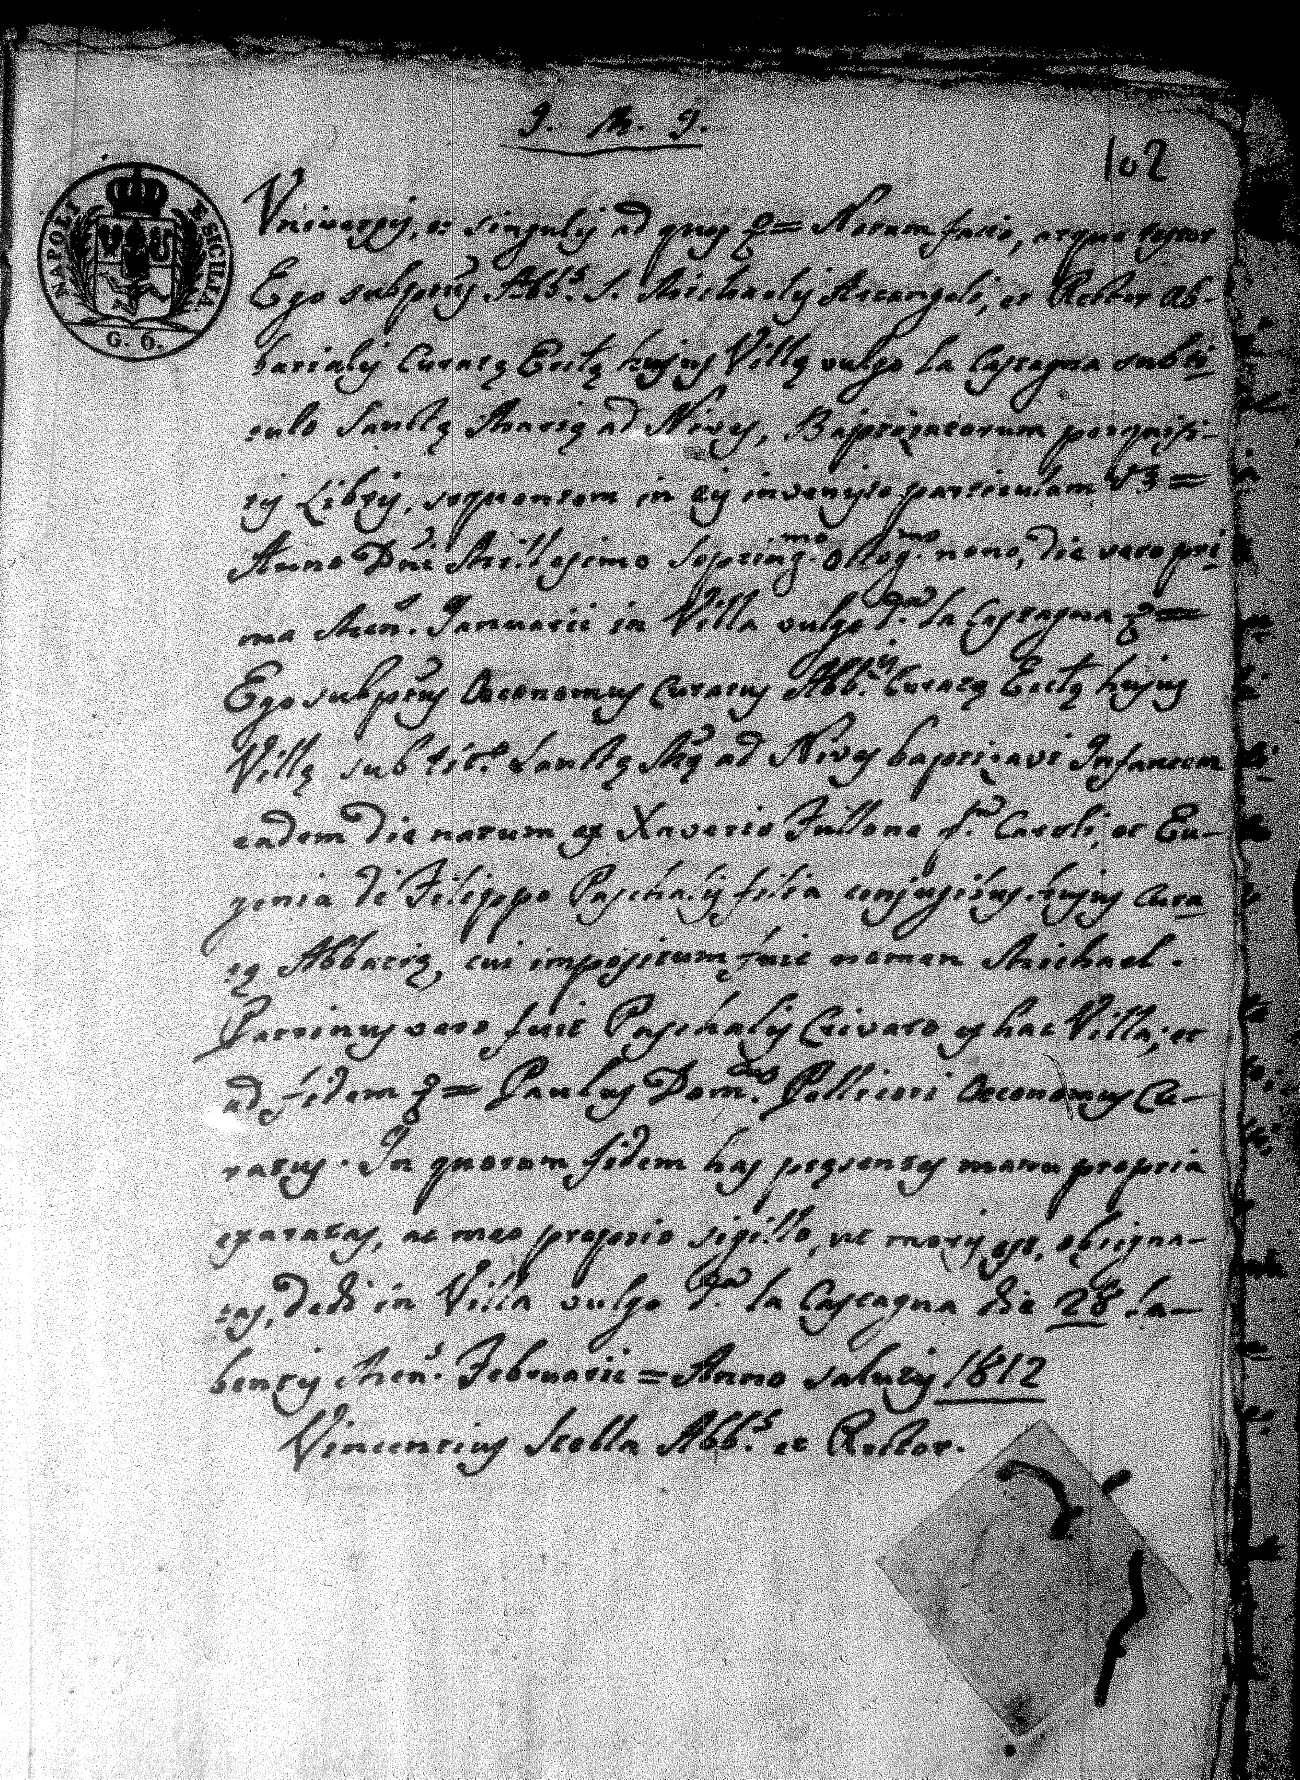 J. M. J.
102
NAPOLI E SICILIA
G. 6.
Universis, et singulis ad quos &= Notum facio, atque testor
Ego subptus Abb.s S. Michaelis Arcangeli, et Rector Ab-
batialis Curatę Ecclę hujus Villę vulgo la Castagna sub ti
tulo Sanctę Marię ad Nives, Baptizatorum perquisi-
tis Libris, sequentem in eis invenisse particulam V3 =
Anno Dni Millesimo Septing.mo octog.mo nono, die vero pri
ma Men.s Januarii in Villa vulgo d.ta la Castagna &=
Ego subptus Oeconomus Curatus Abb.alis Curatę Ecclę hujus
Villę sub tit.o Sanctę Mę ad Nives baptizavi Infantem
eadem die natum ex Xaverio Fullone q.m Caroli, et Eu-
genia di Filippo Paschalis filia conjugibus hujus Cura
tę Abbatię, cui impositum fuit nomen Michael.
Patrinus vero fuit Paschalis Crivaro ex hac Villa; et
ad fidem &= Paulus Dom.cus Pellicori Oeconomus Cu-
ratus. In quorum fidem has pręsentes manu propria
exaratas, ac meo proprio sigillo, ut moris est, obsigna-
tas, dedi in Villa vulgo d.ta la Castagna die 28 la-
bentis Men.s Februarii = Anno salutis 1812
Vincentius Stella Abb.s et Rector.